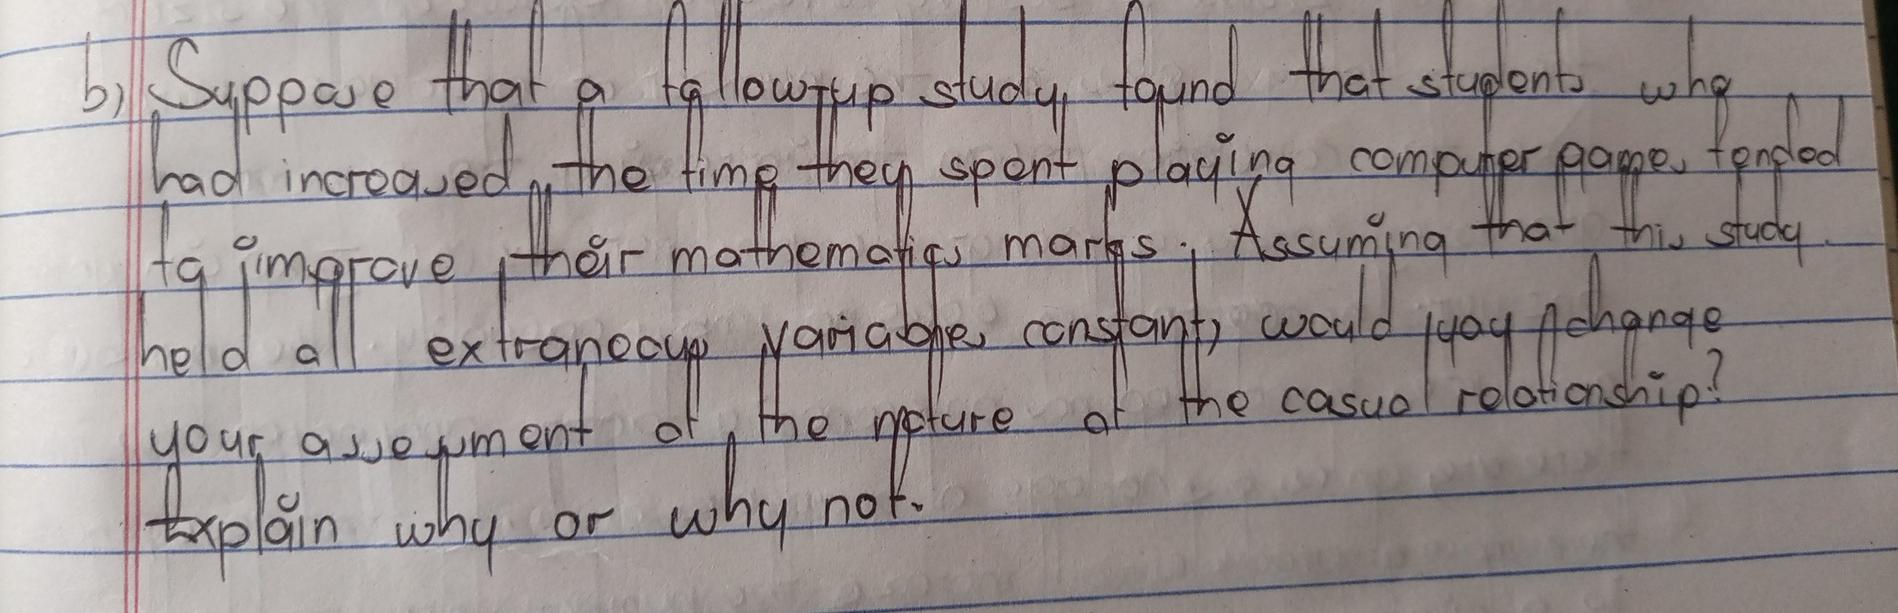 b) Suppose that a follow-up study found that students who
had increased the time they spent playing computer games tended
to improve their mathematics marks. Assuming that this study
held all extraneous variables constant, would you change
your assessment of the nature of the casual relationship?
Explain why or why not.